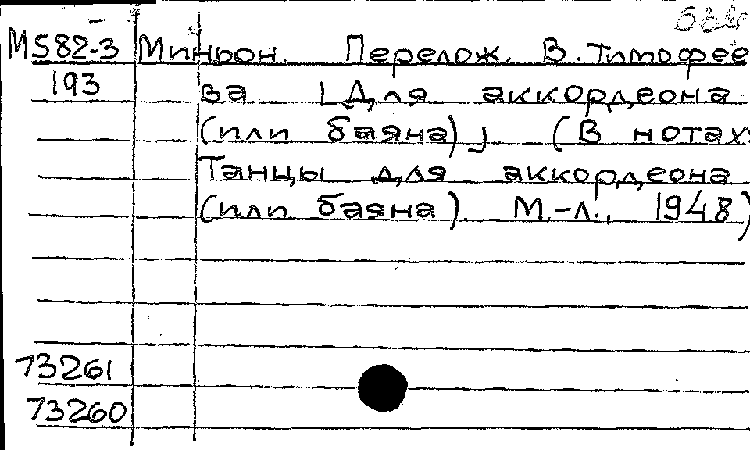 М582-3 Миньон. Перелож. В. Тимофее
193 ва [Для аккордеона
(или баяна)] (В нотах:
Танцы для аккордеона
(или баяна). М.-Л., 1948)
73261
73260